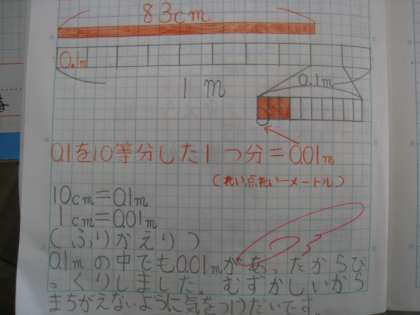 83cm
0.1m
0.1m
1m
0.1を10等分した1つ分=0.01m
(れい点れいーメートル)
10cm=0.1m
1cm=0.01m
(ふりかえり)
0.1mの中でも0.01mがあったからび
っくりしました。むずかしいから
まちがえないように気をつけたいです。